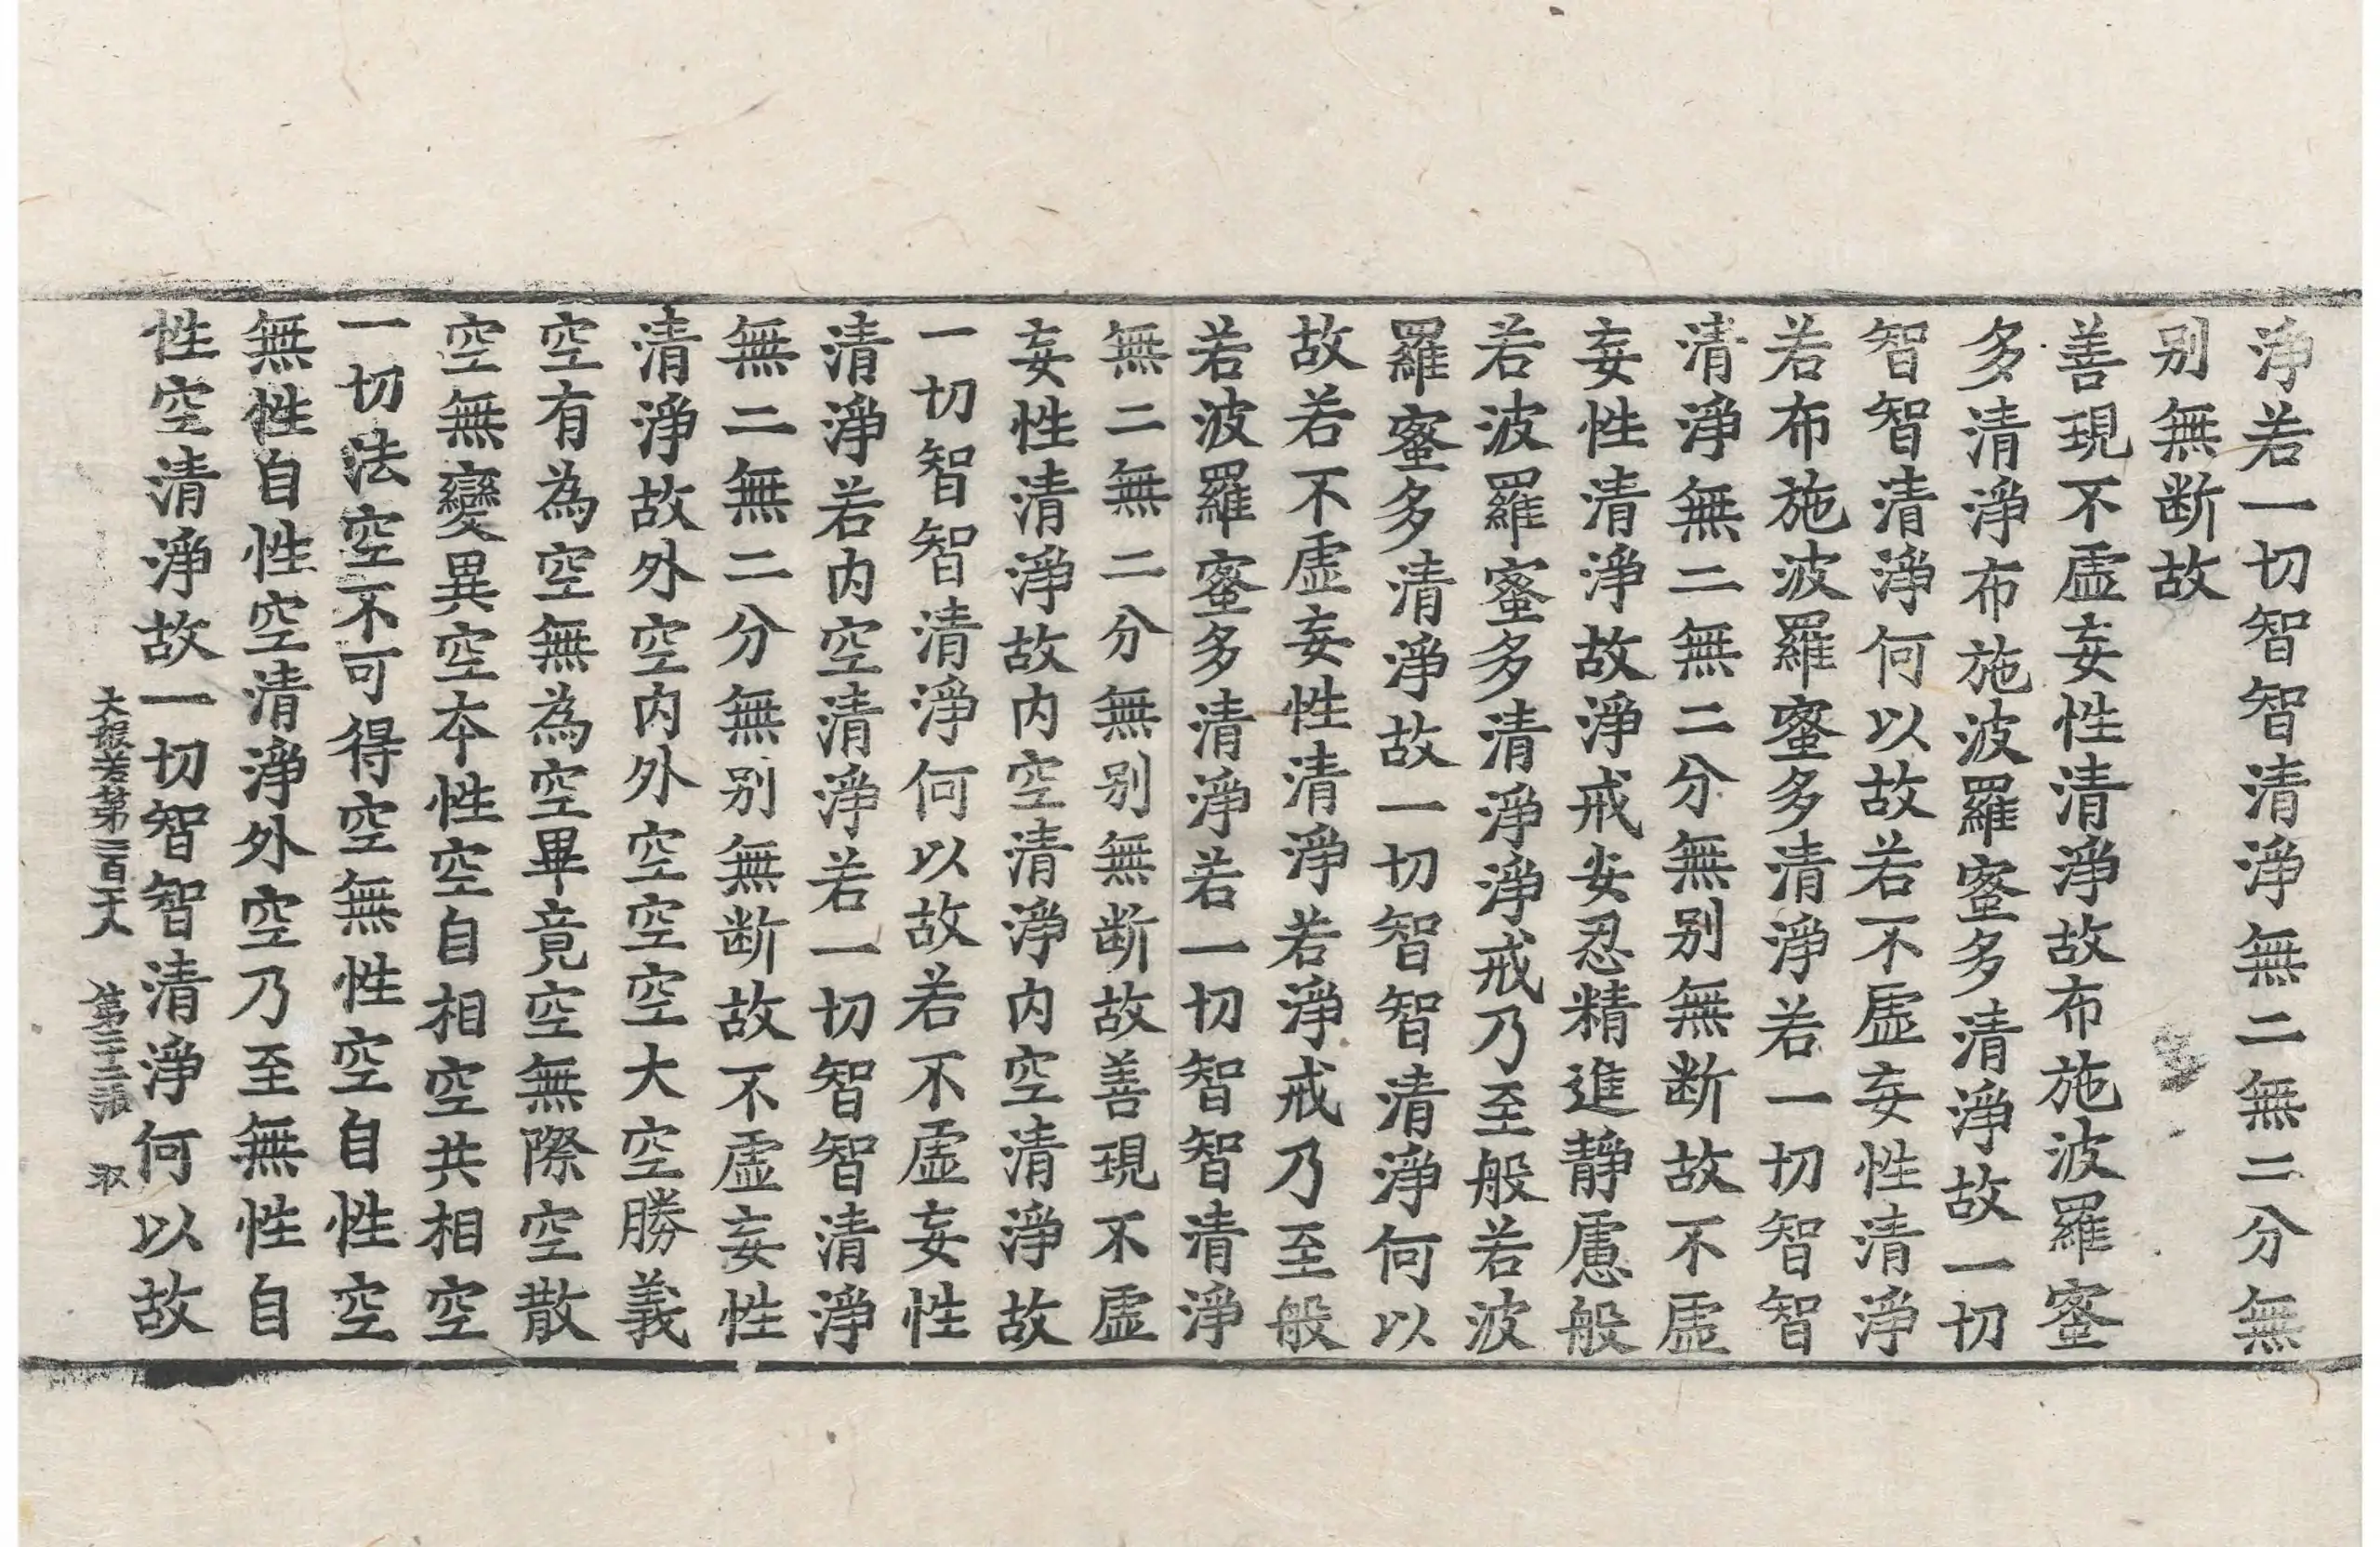 淨若一切智智清淨無二無二分無
别無断故
善現不虛妄性清淨故布施波羅蜜
多清淨布施波羅蜜多清淨故一切
智智清淨何以故若不虛妄性清淨
若布施波羅蜜多清淨若一切智智
清淨無二無二分無别無断故不虛
妄性清淨故淨戒安忍精進靜慮般
若波羅蜜多清淨淨戒乃至般若波
羅蜜多清淨故一切智智清淨何以
故若不虛妄性清淨若淨戒乃至般
若波羅蜜多清淨若一切智智清淨
無二無二分無别無断故善現不虛
妄性清淨故内空清淨内空清淨故
一切智智清淨何以故若不虛妄性
清淨若内空清淨若一切智智清淨
無二無二分無别無断故不虛妄性
清淨故外空内外空空空大空勝義
空有為空無為空畢竟空無際空散
空無變異空本性空自相空共相空
一切法空不可得空無性空自性空
無性自性空清淨外空乃至無性自
性空清淨故一切智智清淨何以故
大般若第二百 第二十二張